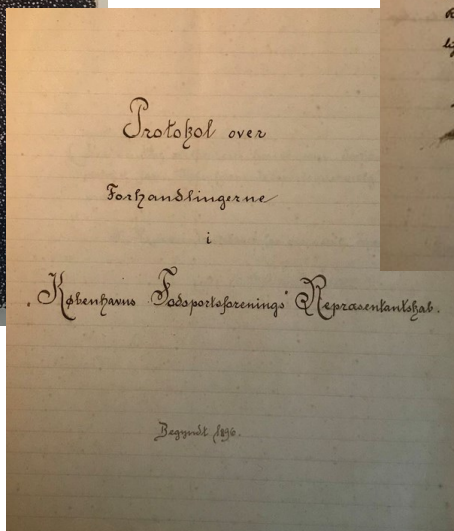 Protokol over
Forhandlingerne
i
Københavns Fodsportsforenings Repræsentantskab.
Begyndt 1896.